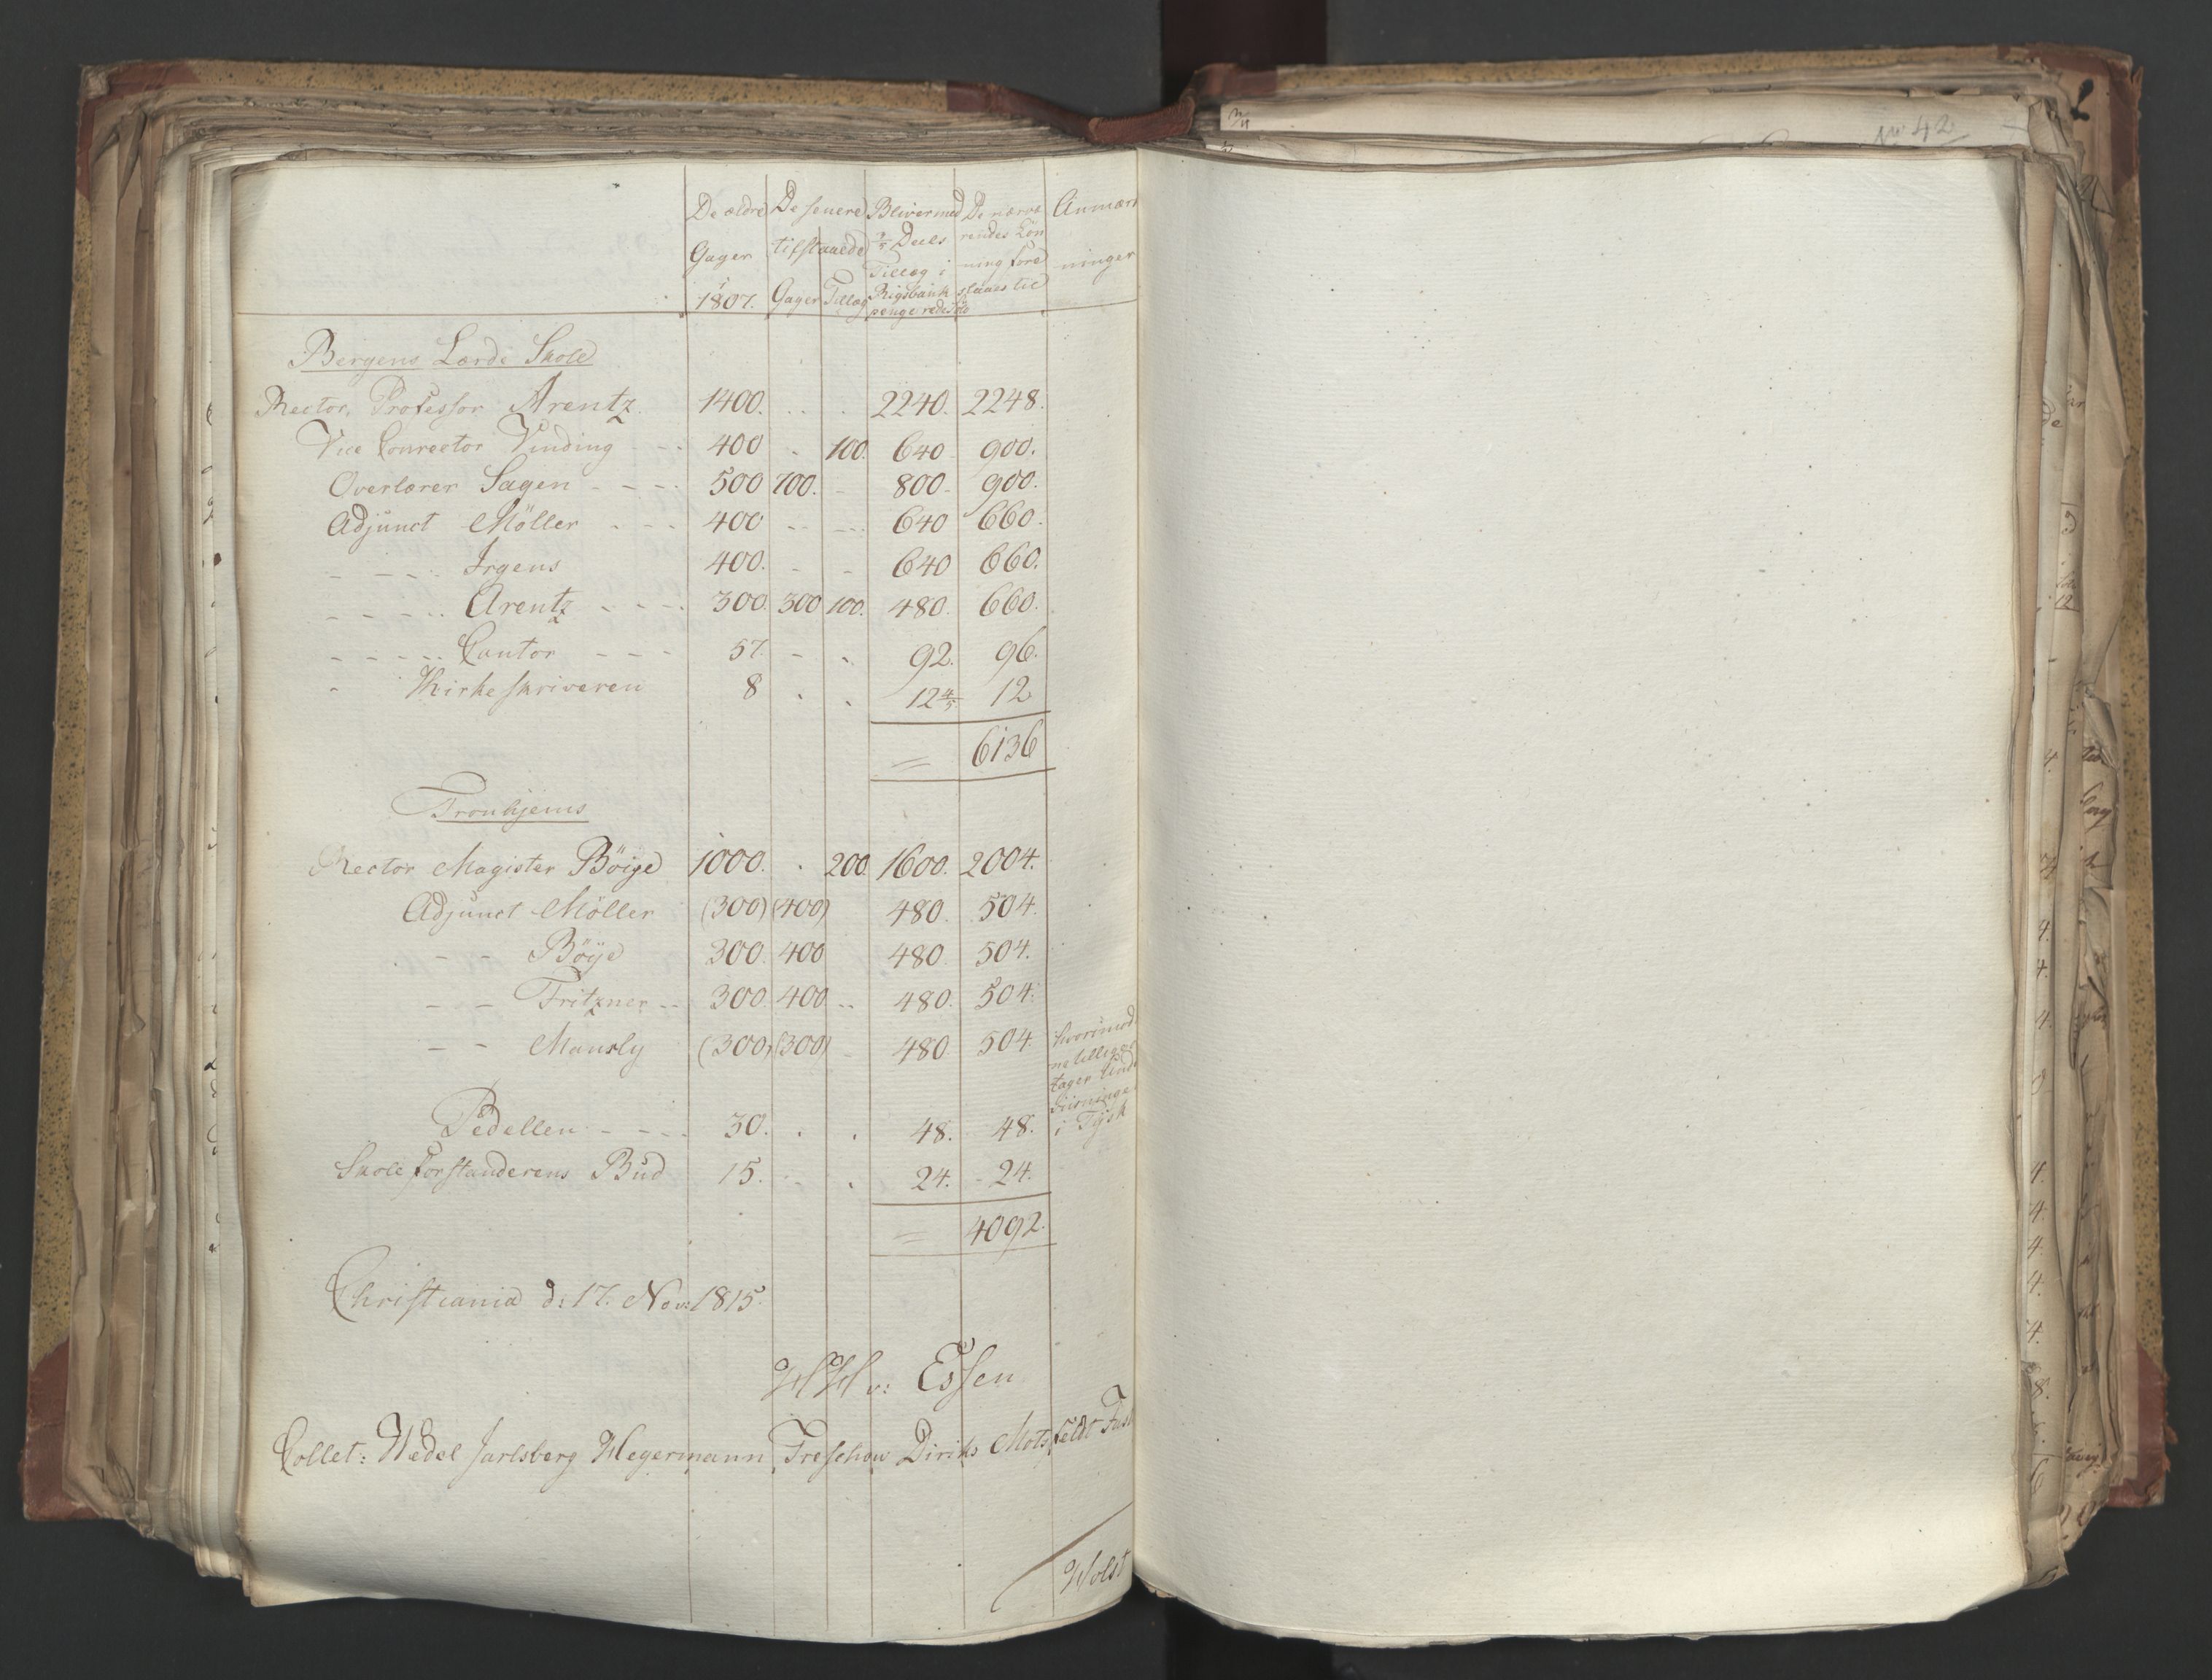 De ældre De senere Blivermed De nærvæ Anmærk
Gager tilstaaede 3/5 Deels rendes Lön ninger
i Tillæg i ning fore
1807. Gager Tillæg Rigsbank slaaes til
penge redesölv
Bergens Lærde Skole
Rector, Professor Arentz. 1400. . . . 2240. 2248.
Vice Conrector Vinding - - - 400 . 100. 640 900.
Overlærer Sagen - - - - 500 700. - 800 - 900.
Adjunct Möller - - - 400 - - - - 640 660.
- - - - Irgens 400. - - 640 660.
- - - - Arentz - - - - 300. 300 100. 480. 660.
- - - - - Cantor - - - 57. - . 92. 96.
- Kirkeskriveren 8 . . 12 4/5 12
= 6136
Tronhjems
Rector Magister Böige 1000. . 200. 1600. 2004.
Adjunct Möller (300) (400) 480. 504.
- - Böye 300. 400 480. 504.
- - Fritzner - - 300. 400 - - 480. 504.
- - Mansly (300) (300) - 480. 504. hvorimod
tager Und
i Tysk
Pedellen - - - 30. . . 48. 48.
Skoleforstanderens Bud 15. - . 24. - 24.
= 4092.
Christiania d: 17. Nov: 1815.
HH v: Essen
Collet: Wedel Jarlsberg Hegermann Treschow Diriks Motzfeldt Fast
Holst
No 42